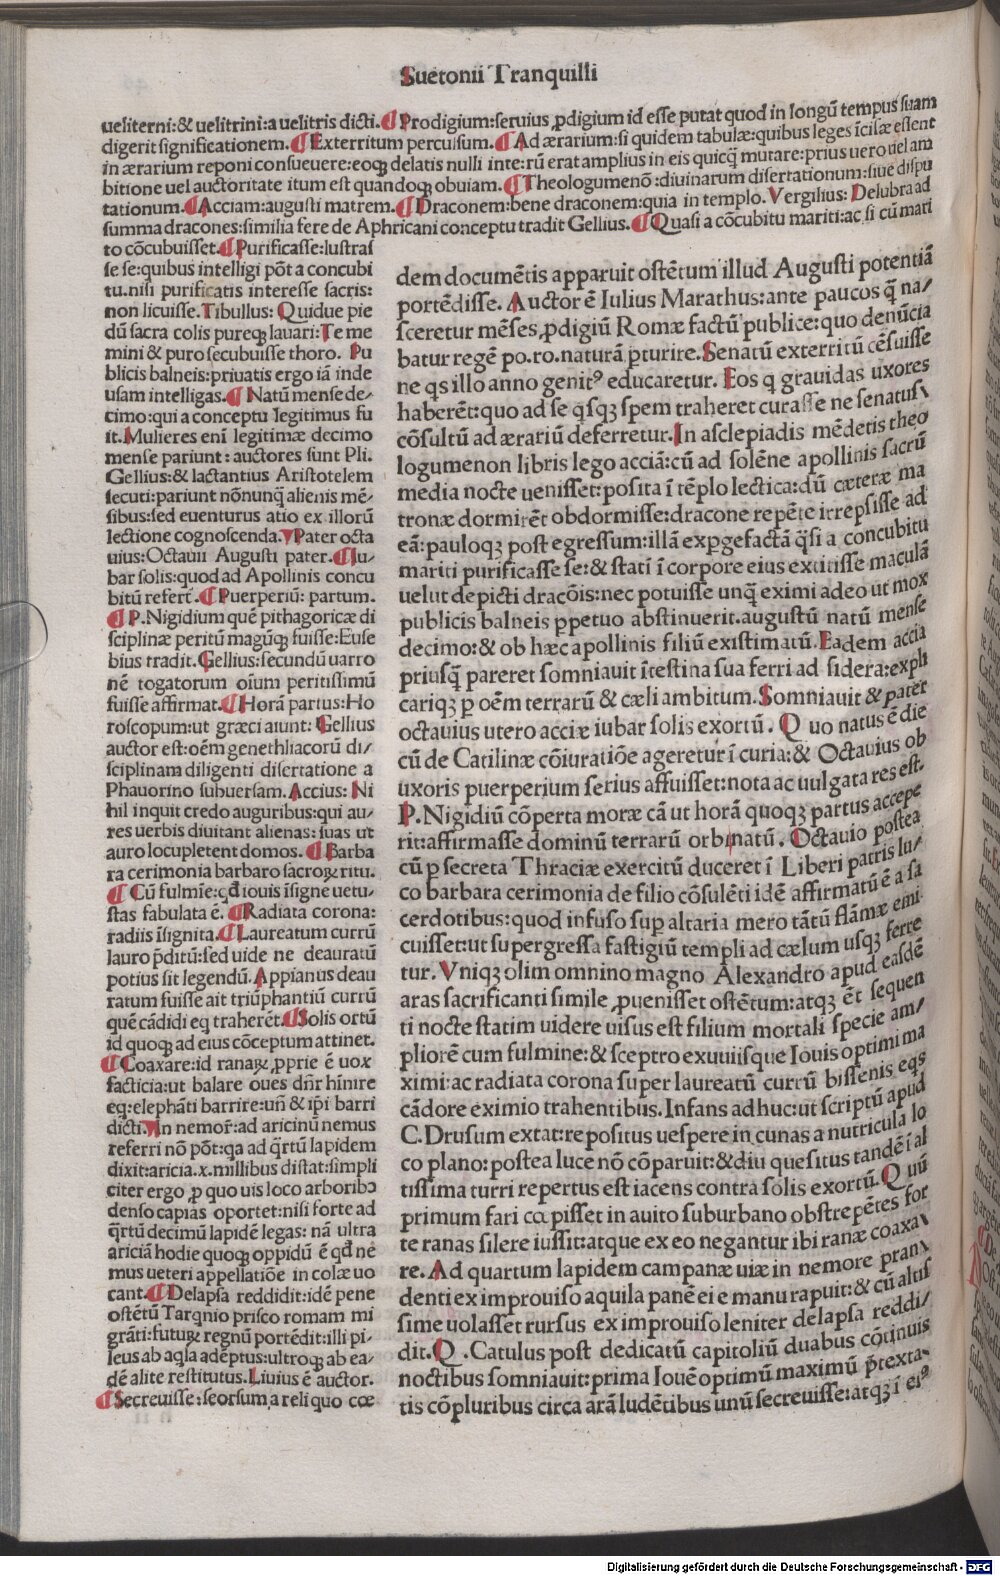 Suetonii Tranquilli
ueliterni:& uelitrini:a uelitris dicti. ¶ Prodigium:seruius ꝓdigium id esse putat quod in longū tempus suam
digerit significationem. ¶ Exterritum perculsum. ¶ Ad ærarium:si quidem tabulæ:quibus leges īcisæ essent
in ærarium reponi consueuere:eoqꝫ delatis nulli inte:rū erat amplius in eis quicq̄ mutare:prius uero uel am
bitione uel auctoritate itum est quandoqꝫ obuiam. ¶ Theologumenō:diuinarum disertationum:siue dispu
tationum. ¶ Acciam:augusti matrem. ¶ Draconem:bene draconem:quia in templo. Vergilius: Delubra ad
summa dracones:similia fere de Aphricani conceptu tradit Gellius. ¶ Quasi a cōcubitu mariti:ac si cū mari
to cōcubuisset. ¶ Purificasse:lustras
se se:quibus intelligi pōt a concubi
tu.nisi purificatis interesse sacris:
non licuisse. Tibullus: Quidue pie
dū sacra colis pureqꝫ lauari: Te me
mini & puro secubuisse thoro. Pu
blicis balneis:priuatis ergo iā inde
usam intelligas. ¶ Natū mense de-
cimo:qui a conceptu legitimus fu
it. Mulieres eni legitimæ decimo
mense pariunt:auctores sunt Pli.
Gellius:& lactantius Aristotelem
secuti:pariunt nōnunq̄ alienis mē-
sibus:sed euenturus atio ex illorū
lectione cognoscenda. Pater octa
uius:Octauii Augusti pater. ¶ Iu-
bar solis:quod ad Apollinis concu
bitū refert. ¶ Puerperiū: partum.
¶ P.Nigidium quē pithagoricæ di
sciplinæ peritū magūqꝫ fuisse:Euse
bius tradit. Gellius:secundū uarro
nē togatorum oīum peritissimū
fuisse affirmat. ¶ Horā partus:Ho
roscopum:ut græci aiunt: Gellius
auctor est:oēm genethliacorū di/
sciplinam diligenti disertatione a
Phauorino subuersam. Accius: Ni
hil inquit credo auguribus:qui au/
res uerbis diuitant alienas:suas ut
auro locupletent domos. ¶ Barba
ra cerimonia barbaro sacroꝝ ritu.
¶ Cū fulmīe:qđ iouis īsigne uetu/
stas fabulata ē. ¶ Radiata corona:
radiis īsignita. ¶ Laureatum currū
lauro p̄ditū:sed uide ne deauratū
potius sit legendū. Appianus deau
ratum fuisse ait triūphantiū currū
quē cādidi eq traherēt. ¶ Solis ortū
id quoqꝫ ad eius cōceptum attinet.
¶ Coaxare:id ranaꝝ ꝓprie ē uox
facticia:ut balare oues dn̄r hīnire
eq:elephāti barrire:un̄ & ip̄i barri
dicti. In nemor̄:ad aricinū nemus
referri nō pōt:qa ad q̄rtū lapidem
dixit:aricia.x.millibus distat:simpli
citer ergo ꝓ quo uis loco arboribꝰ
denso capias oportet:nisi forte ad
q̄rtū decimū lapidē legas: nā ultra
ariciā hodie quoqꝫ oppidū ē qđ ne
mus ueteri appellatiōe in colæ uo
cant. ¶ Delapsa reddidit:idē pene
ostētū Tarqnio prisco romam mi
grāti:futuꝝ regnū portēdit:illi pi/
leus ab aqla adēptus:ultroqꝫ ab ea/
dē alite restitutus. Liuius ē auctor.
¶ Secreuisse:seorsum a reli quo cœ
dem documētis apparuit ostētum illud Augusti potentiā
portēdisse. Auctor ē Iulius Marathus:ante paucos q̄ na/
sceretur mēses ꝓdigiū Romæ factū publice:quo denūcia
batur regē po.ro.naturā ꝑturire. Senatū exterritū cēsuisse
ne qs illo anno genitꝰ educaretur. Eos q grauidas uxores
haberēt:quo ad se q̄sqꝫ spem traheret curasse ne senatus\
cōsultū ad ærariū deferretur. In asclepiadis mēdetis theo
logumenon libris lego acciā:cū ad solēne apollinis sacrū
media nocte uenisset:posita ī tēplo lectica:dū cæteræ ma
tronæ dormirēt obdormisse:dracone repēte irrepsisse ad
eā:pauloqꝫ post egressum:illā exp̱gefactā q̄si a concubitu
mariti purificasse se:& stati ī corpore eius extitisse maculā
uelut depicti dracōis:nec potuisse unq̄ eximi adeo ut mox
publicis balneis ꝑpetuo abstinuerit.augustū natū mense
decimo:& ob hæc apollinis filiū existimatū. Eadem accia
priusq̄ pareret somniauit ītestina sua ferri ad sidera:expli
cariqꝫ ꝑ oēm terrarū & cæli ambitum. Somniauit & pater
octauius utero acciæ iubar solis exortū. Quo natus ē die
cū de Catilinæ cōiuratiōe ageretur ī curia:& Octauius ob
uxoris puerperium serius affuisset:nota ac uulgata res est.
P.Nigidiū cōperta moræ cā ut horā quoqꝫ partus accepe
rit:affirmasse dominū terrarū orbi natū. Octauio postea
cū ꝑ secreta Thraciæ exercitū duceret ī Liberi patris lu/
co barbara cerimonia de filio cōsulēti idē affirmatū ē a sa
cerdotibus:quod infuso suꝑ altaria mero tātū flāmæ emi
cuisset:ut supergressa fastigiū templi ad cælum usqꝫ ferre
tur. Vniqꝫ olim omnino magno Alexandro apud easdē
aras sacrificanti simile ꝓuenisset ostētum:atqꝫ ēt sequen
ti nocte statim uidere uisus est filium mortali specie am/
pliorē cum fulmine:& sceptro exuuiisque Iouis optimi ma
ximi:ac radiata corona super laureatū currū bissenis eqs
cādore eximio trahentibus. Infans ad huc:ut scriptū apud
C.Drusum extat:repositus uespere in cunas a nutricula lo
co plano:postea luce nō cōparuit:&diu quesitus tandē ī al
tissima turri repertus est iacens contra solis exortū. Quū
primum fari cœpisset in auito suburbano obstrepētes for
te ranas silere iussit:atque ex eo negantur ibi ranæ coaxa\
re. Ad quartum lapidem campanæ uiæ in nemore pran\
denti ex improuiso aquila panē ei e manu rapuit:& cū altis
sime uolasset rursus ex improuiso leniter delapsa reddi/
dit. Q.Catulus post dedicatū capitoliū duabus cōtinuis
noctibus somniauit:prima Iouē optimū maximū p̄texta\
tis cōpluribus circa arā ludētibus unū secreuisse:atqꝫ ī eiꝰ
Digitalisierung gefördert durch die Deutsche Forschungsgemeinschaft - DFG